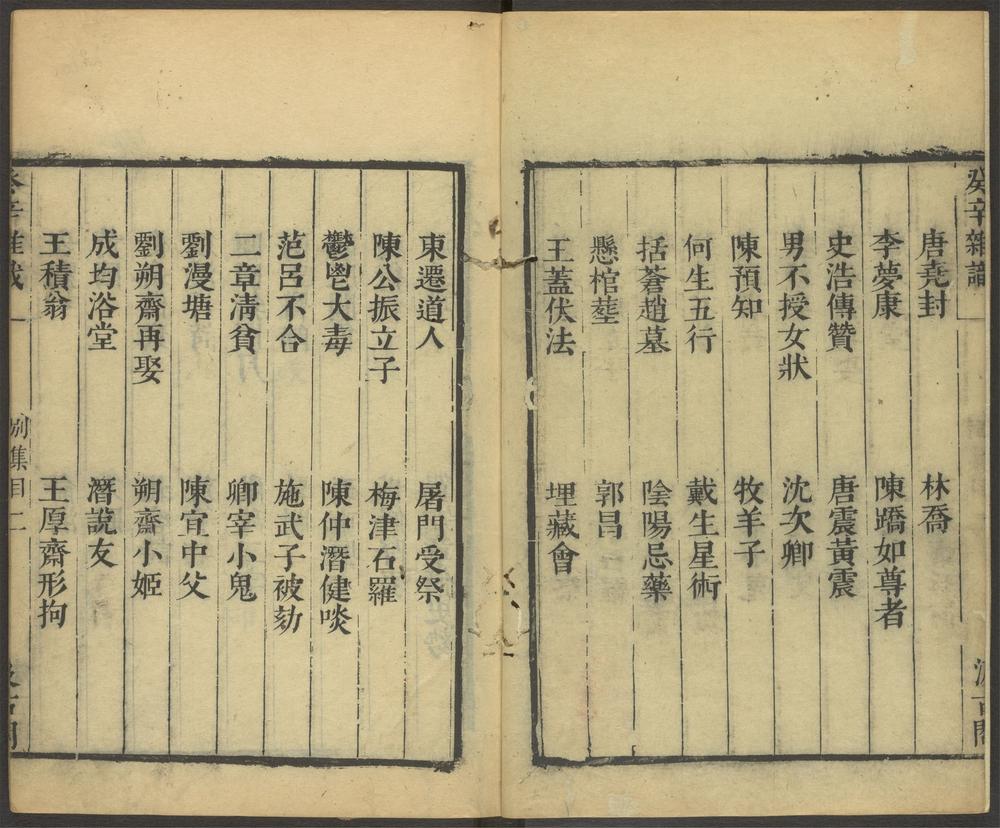 癸辛雜識
汲古閣
唐堯封　林喬
李夢康　陳蹻如尊者
史浩傳贊　唐震黃震
男不授女狀　沈次卿
陳預知　牧羊子
何生五行　戴生星術
括蒼趙墓　陰陽忌藥
懸棺葬　郭昌
王蓋伏法　埋藏會
東遷道人　屠門受祭
陳公振立子　梅津石羅
鬱鬯大毒　陳仲潛健啖
范呂不合　施武子被劾
二章清貧　卿宰小鬼
劉漫塘　陳宜中父
劉朔齋再娶　朔齋小姬
成均浴堂　潛說友
王積翁　王厚齋形拘
別集目二